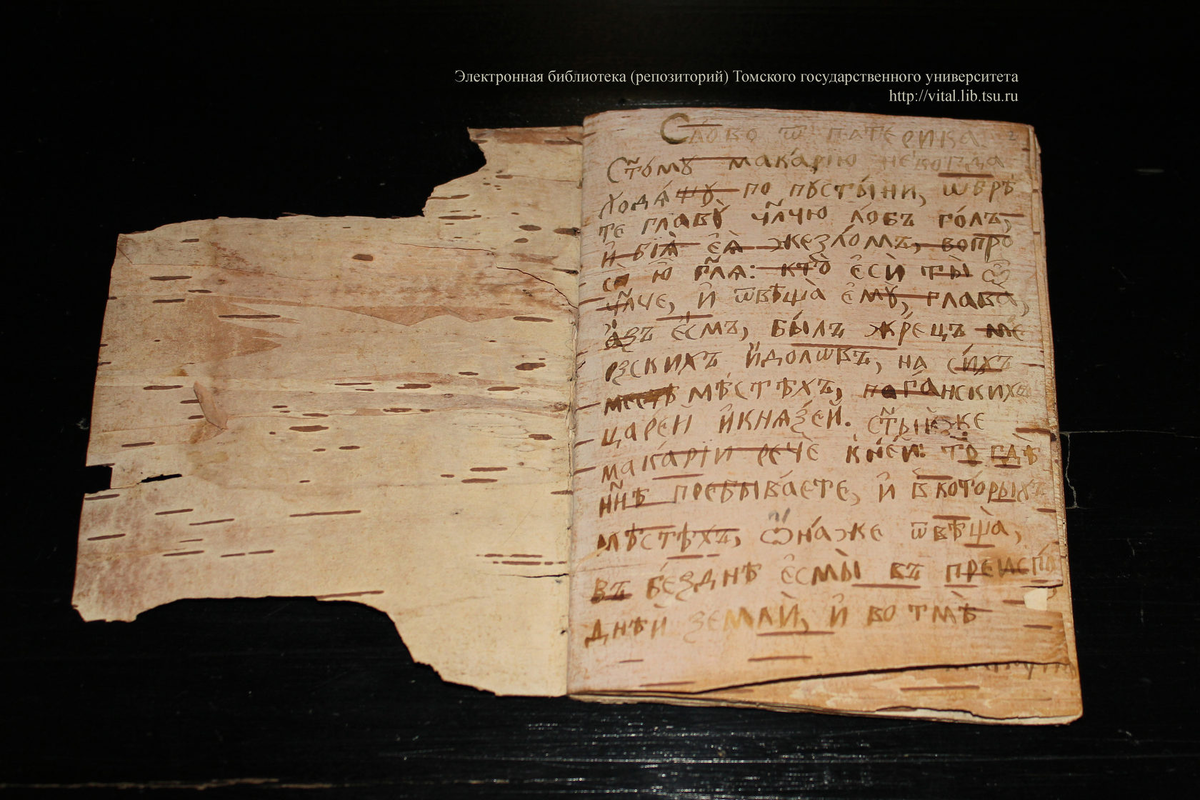 Электронная библиотека (репозиторий) Томского государственного университета
http://vital.lib.tsu.ru
Слово ѿ патерика
Ст҃ому макарїю некогда
ходѧщу по пустыни, ѡбрѣ
те главу̀ чл҃чю лобъ голъ,
и҆ бїѧ̀ є҆ѧ̀ жезломъ, вопро
си ю҆̀ гл҃я: кто̀ є҆сѝ ты̀ ѽ
чл҃че, и҆ ѿвѣща̀ є҆му̀, глава̀,
а҆зъ є҆смь, былъ жрецъ ме
рзскихъ и҆долѡвъ, на си́хъ
мѣстѣхъ, поганскихъ
царей и҆ князе́й. ст҃ы́йже
макарїи речѐ к не́й: то̀ гдѣ
нн҃ѣ пребываете, и҆ в которыхъ
мѣстѣхъ, ѻ҆на́же ѿвѣща̀,
въ безднѣ є҆смы̀ въ преиспо
днѣй землѝ, и҆ во тмѣ̀